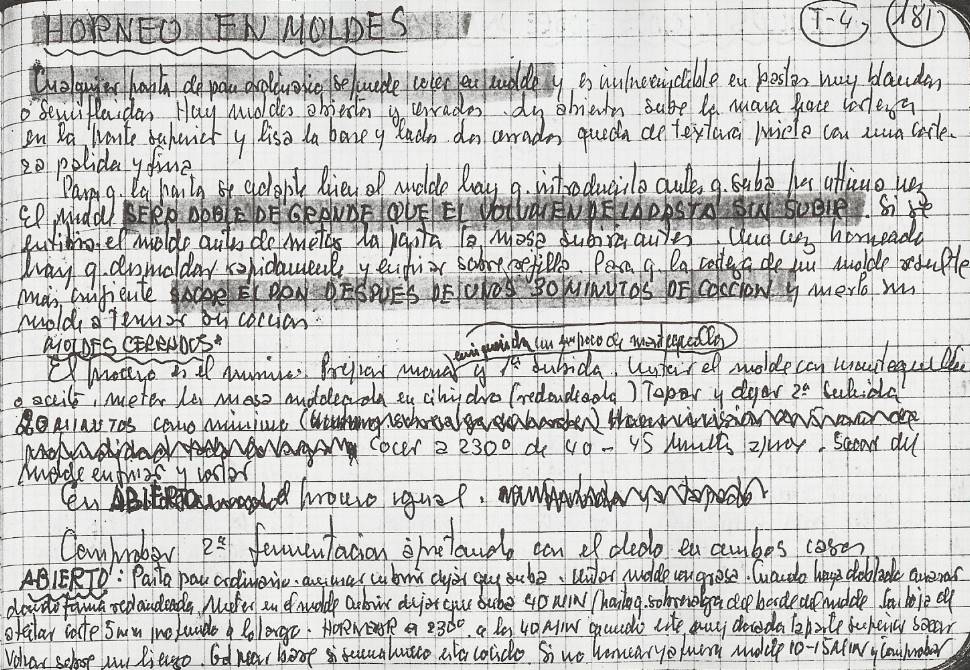 HORNEO EN MOLDES T-4 181
Cualquier pasta de pan ordinario se puede cocer en molde y es imprescindible en pastas muy blandas
o semifluidas. Hay moldes abiertos y cerrados. abiertos sube la masa hace corteza
en la parte superior y lisa la base y lados. cerrados queda de textura prieta con una corte-
za palida y fina
Para q. la pasta se adapte bien al molde hay q. introducirla antes q. suba por ultima vez
El molde SERA DOBLE DE GRANDE QUE EL VOLUMEN DE LA PASTA SIN SUBIR. Si se
entibia el molde antes de meter la pasta la masa subirá antes. Una vez horneado
hay q. desmoldar rapidamente y enfriar sobre rejilla. Para q. la corteza de un molde resulte
más crujiente SACAR EL PAN DESPUES DE UNOS 30 MINUTOS DE COCCION y meterlo sin
molde a terminar su coccion.
MOLDES CERRADOS*
enriquecida con un poco de mantequilla
El proceso es el mismo. Preparar masa y 1ª subida. Untar el molde con mantequilla
o aceite, meter la masa moldeada en cilindro (redondeada) Tapar y dejar 2ª subida
20 MINUTOS como minimo
cocer a 230º de 40 - 45 minutos Sacar del
molde enfriar y cortar
En ABIERTO el proceso igual.
Comprobar 2ª fermentacion apretando con el dedo en ambos casos
ABIERTO: Pasta pan ordinario. amasar cubrir dejar que suba. Untar molde con grasa. Cuando haya doblado amasar
dando forma redondeada. Meter en el molde cubrir dejar que suba 40 MIN (hasta q. sobresalga del borde del molde. Con hoja de
afeitar corte 5 mm profundo a lo largo. HORNEAR a 230º a los 40 MIN cuando este muy dorada la parte superior sacar
Volcar sobre un lienzo. Golpear base si suena hueco esta cocido. Si no hornear fuera molde 10-15 MIN y comprobar